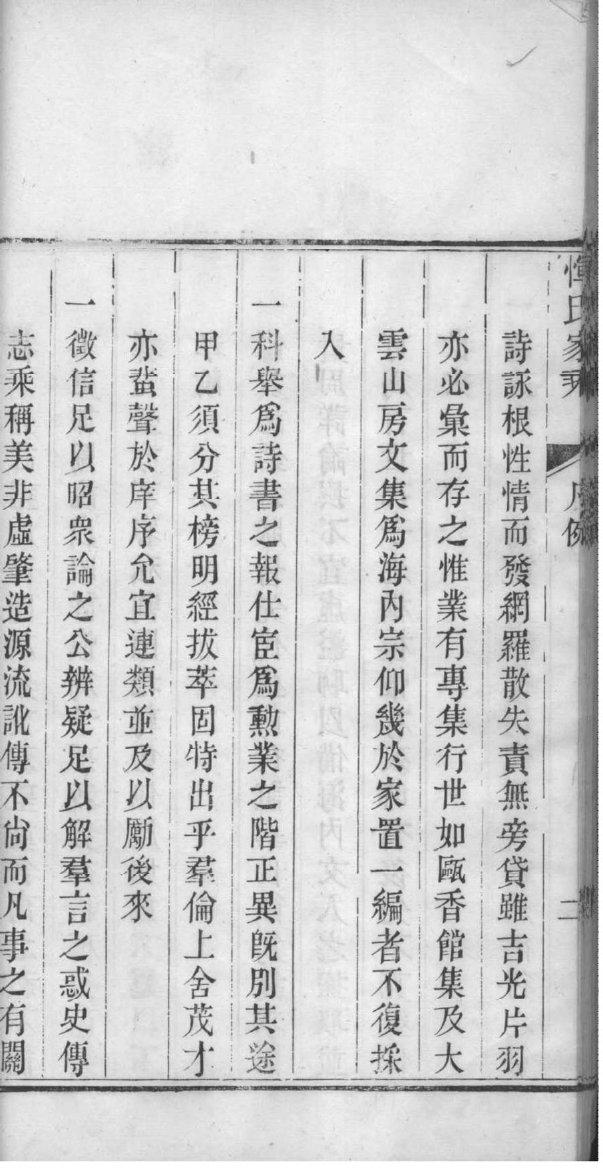 惲氏家乘 序例 二
詩詠根性情而發網羅散失責無旁貸雖吉光片羽
亦必彙而存之惟業有專集行世如甌香館集及大
雲山房文集爲海內宗仰幾於家置一編者不復採
入
一科舉爲詩書之報仕宦爲勳業之階正異旣別其途
甲乙須分其榜明經拔萃固特出乎羣倫上舍茂才
亦蜚聲於庠序允宜連類並及以勵後來
一徵信足以昭衆論之公辨疑足以解羣言之惑史傳
志乘稱美非虛肇造源流訛傳不尙而凡事之有關